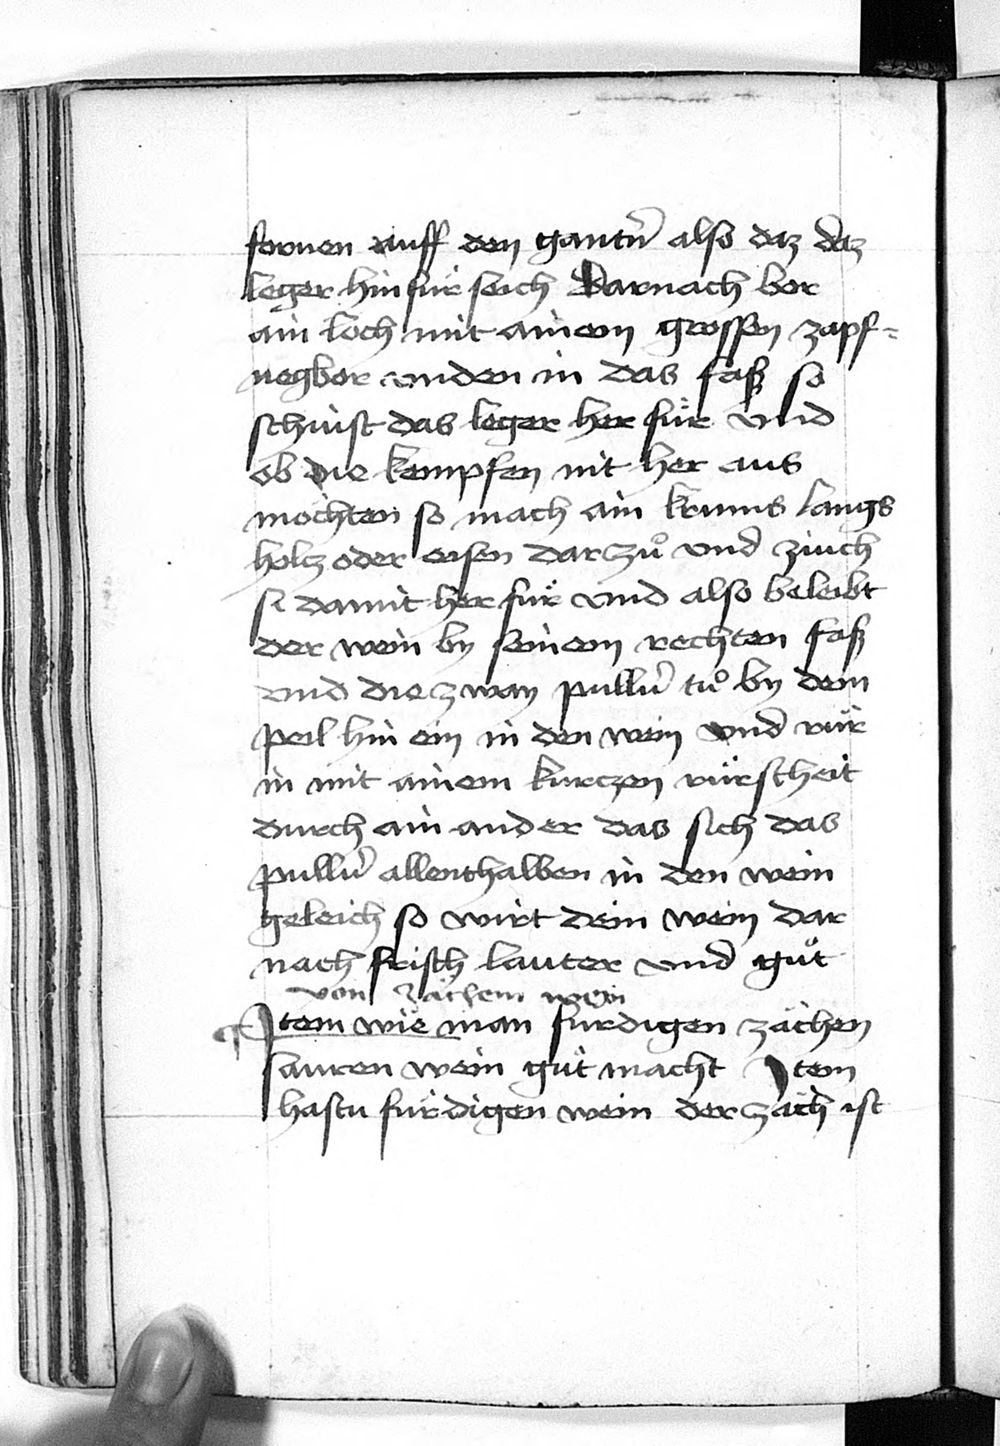 fornen auff den gantn̄ also daz daz
leger hin für seich Darnach bor
ain loch mit ainem grossen zapf=
negbor unden in das faß so
schiust das leger her für und
ob die kempfen nit her aus
möchten so mach ain krums langs
holcz oder eisen darzuͦ und ziuch
si damit her für und also beleibt
der wein by seinem rechten faß
und die zway pulluͤ tuͦ by dem
peil hin ein in den wein und rür
in mit ainem kurczen rürscheit
durch ain ander das sich das
pulluͤ allenthalben in den wein
geleich so wirt dein wein dar
nach frisch lauter und guͦt
von zächem wein
Item wie man fürdigen zächen
sauren wein guͦt macht Item
hastu fürdigen wein der zäch ist